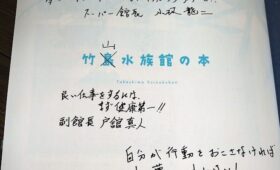 スーパー館長 小林龍二
山
竹島水族館の本
Takeshima Suizokukan
良い仕事をするには、
まず健康第一!!
副館長 戸舘真人
自分が行動をおこさなければ